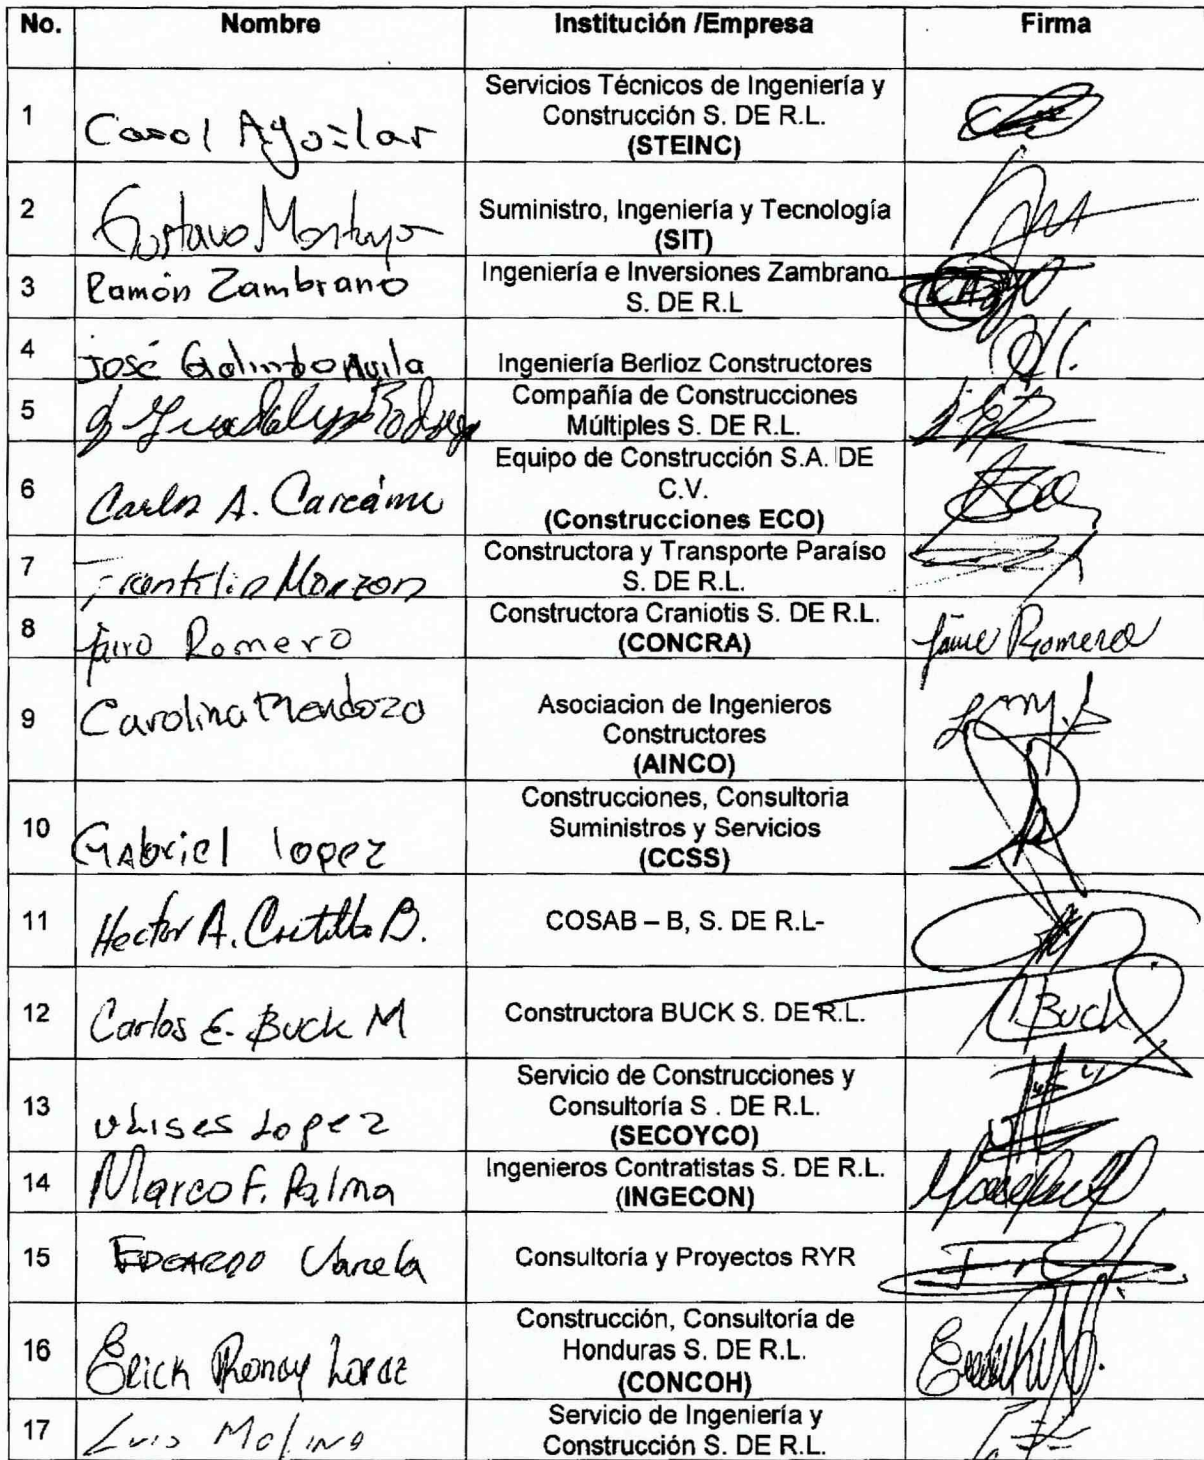 No. Nombre Institución /Empresa Firma
1 Carol Aguilar Servicios Técnicos de Ingeniería y
Construcción S. DE R.L.
(STEINC)
2 Gustavo Montoya Suministro, Ingeniería y Tecnología
(SIT)
3 Ramón Zambrano Ingeniería e Inversiones Zambrano
S. DE R.L
4 José Galindo Avila Ingeniería Berlioz Constructores
5 Guadalupe Compañía de Construcciones
Múltiples S. DE R.L.
6 Carlos A. Carcámo Equipo de Construcción S.A. DE
C.V.
(Construcciones ECO)
7 Franklin Monzon Constructora y Transporte Paraíso
S. DE R.L.
8 Romero Constructora Craniotis S. DE R.L. Jaime Romero
(CONCRA)
9 Carolina Mendoza Asociacion de Ingenieros
Constructores
(AINCO)
10 Gabriel lopez Construcciones, Consultoria
Suministros y Servicios
(CCSS)
11 Hector A. Castillo B. COSAB – B, S. DE R.L-
12 Carlos E. Buck M Constructora BUCK S. DE R.L. Buck
13 Ulises Lopez Servicio de Construcciones y
Consultoría S . DE R.L.
(SECOYCO)
14 Marco F. Palma Ingenieros Contratistas S. DE R.L.
(INGECON)
15 EDGARDO Varela Consultoría y Proyectos RYR
16 Erick Lopez Construcción, Consultoría de
Honduras S. DE R.L.
(CONCOH)
17 Luis Molina Servicio de Ingeniería y
Construcción S. DE R.L.